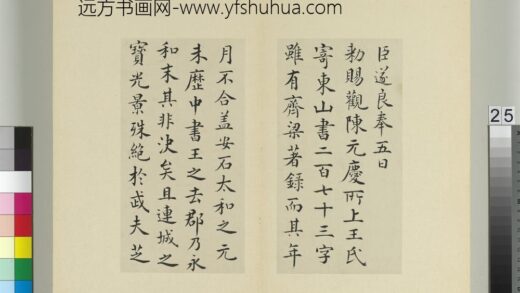 远方书画网-www.yfshuhua.com
臣遂良奉五日
勑賜觀陳元慶所上王氏
寄東山書二百七十三字
雖有齊梁著録而其年
月不合蓋安石太和之元
未歷中書王之去郡乃永
和末其非決矣且連城之
寶光景殊絶於武夫芝
25